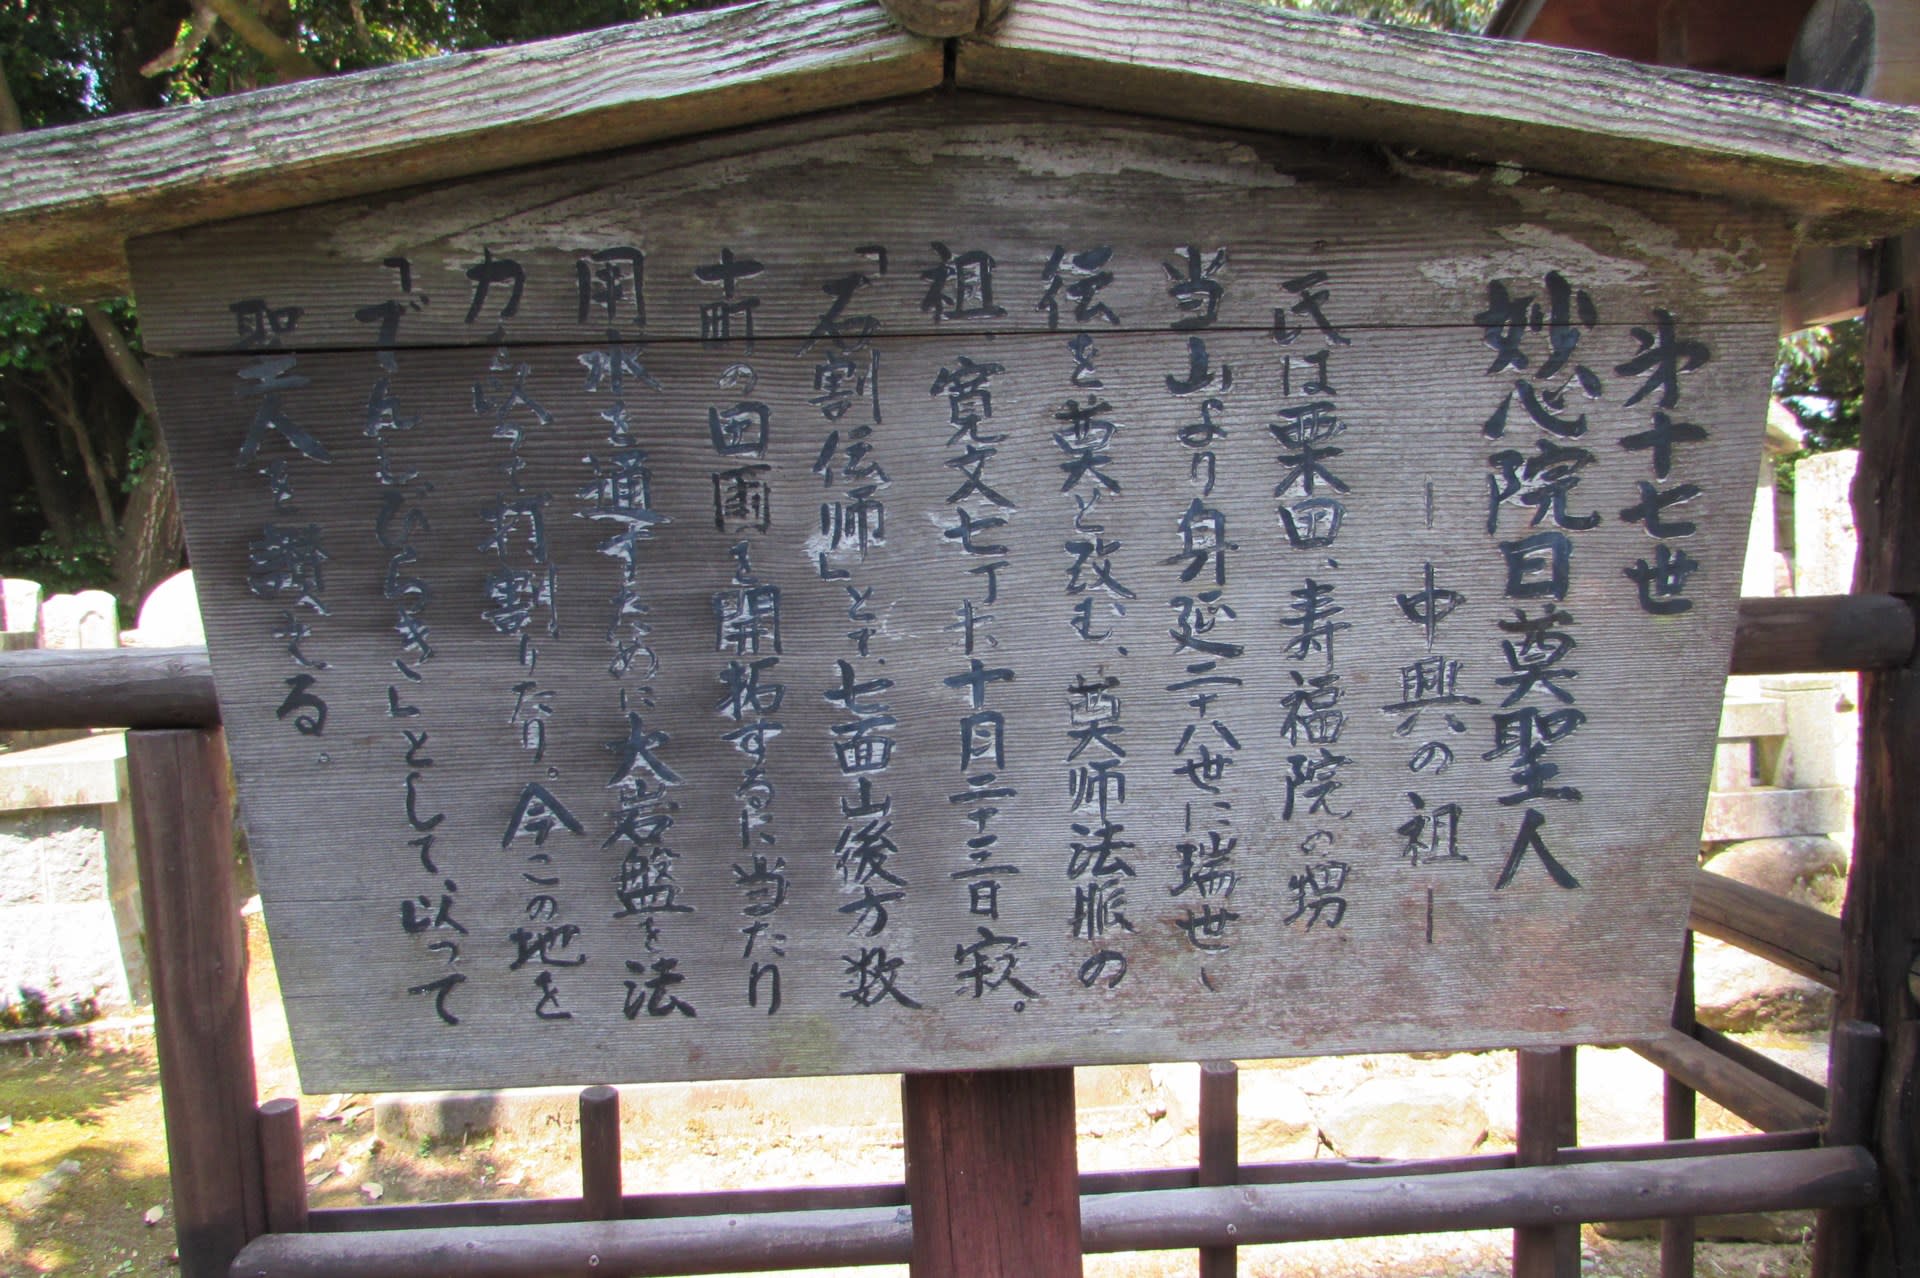 第十七世
妙心院日奠聖人
―中興の祖―
氏は栗田、寿福院の甥
当山より身延二十八世に瑞世、
伝を奠と改む、奠师法脈の
祖、寛文七丁未、十月二十三日寂。
「石割伝师」とて、七面山後方数
十町の田圃を開拓するに当たり
用水を通すために大岩盤を法
力を以って打割りたり。今この地を
「でんしびらき」として以って
聖人を讃える。